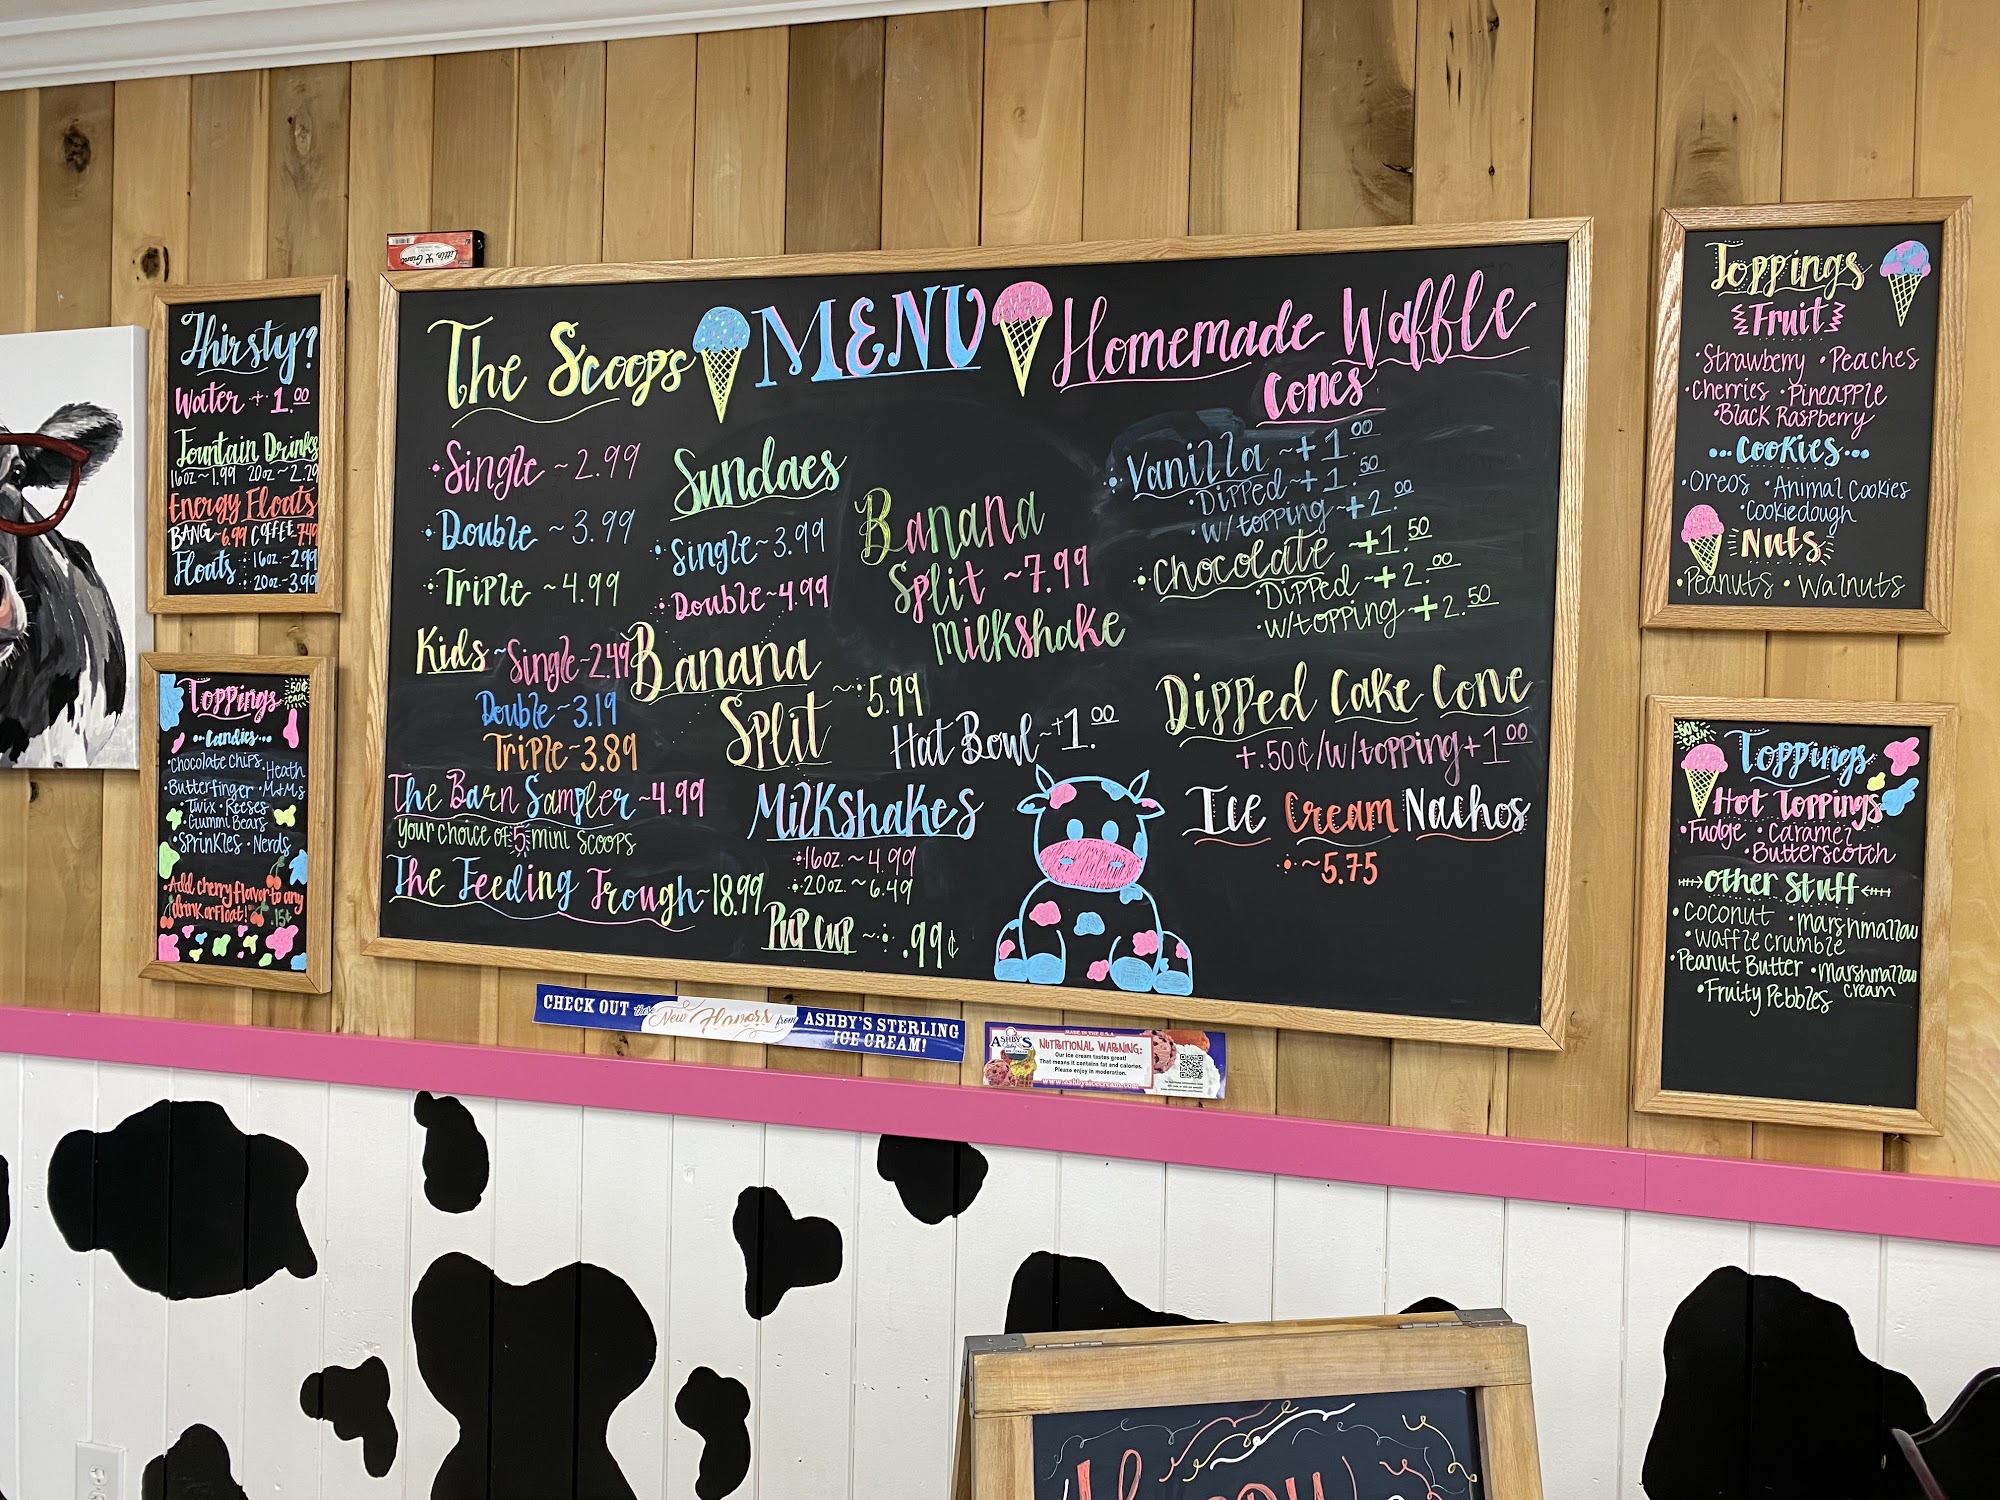 Thirsty?
Water + 1.00
Fountain Drinks
16oz~1.99 20oz~2.29
Energy Floats
BANG~6.99 Coffee~7.49
Floats 16oz~2.99
20oz~3.99
Toppings 50¢ each
Candies
Chocolate Chips Heath
Butterfinger M+Ms
Twix Reeses
Gummi Bears
Sprinkles Nerds
Add cherry flavor to any
drink or float! .15¢
MENU
The Scoops
Single ~2.99
Double ~3.99
Triple ~4.99
Kids ~ Single~2.49
Double~3.19
Triple~3.89
The Barn Sampler~4.99
your choice of 5 mini scoops
The Feeding Trough~18.99
Sundaes
Single~3.99
Double~4.99
Banana
Split ~5.99
Milkshakes
16oz.~4.99
20oz.~6.49
Pup Cup ~ .99¢
Banana
Split ~7.99
Milkshake
Hat Bowl~+1.00
Homemade Waffle
Cones
Vanilla ~+1.00
Dipped~+1.50
w/topping~+2.00
Chocolate +1.50
Dipped~+2.00
w/topping+2.50
Dipped Cake Cone
+.50¢/w/topping+1.00
Ice Cream Nachos
~5.75
Toppings
Fruit
Strawberry Peaches
Cherries Pineapple
Black Raspberry
Cookies
Oreos Animal Cookies
Cookiedough
Nuts
Peanuts Walnuts
Toppings
Hot Toppings
Fudge Caramel
Butterscotch
Other Stuff
Coconut marshmallow
waffle crumble
Peanut Butter marshmallow
cream
Fruity Pebbles
Little Giant
CHECK OUT these New Flavors from ASHBY'S STERLING
ICE CREAM!
MADE IN THE U.S.A.
ASHBY'S
NUTRITIONAL WARNING:
Our ice cream tastes great!
That means it contains fat and calories.
Please enjoy in moderation.
www.ashbysicecream.com